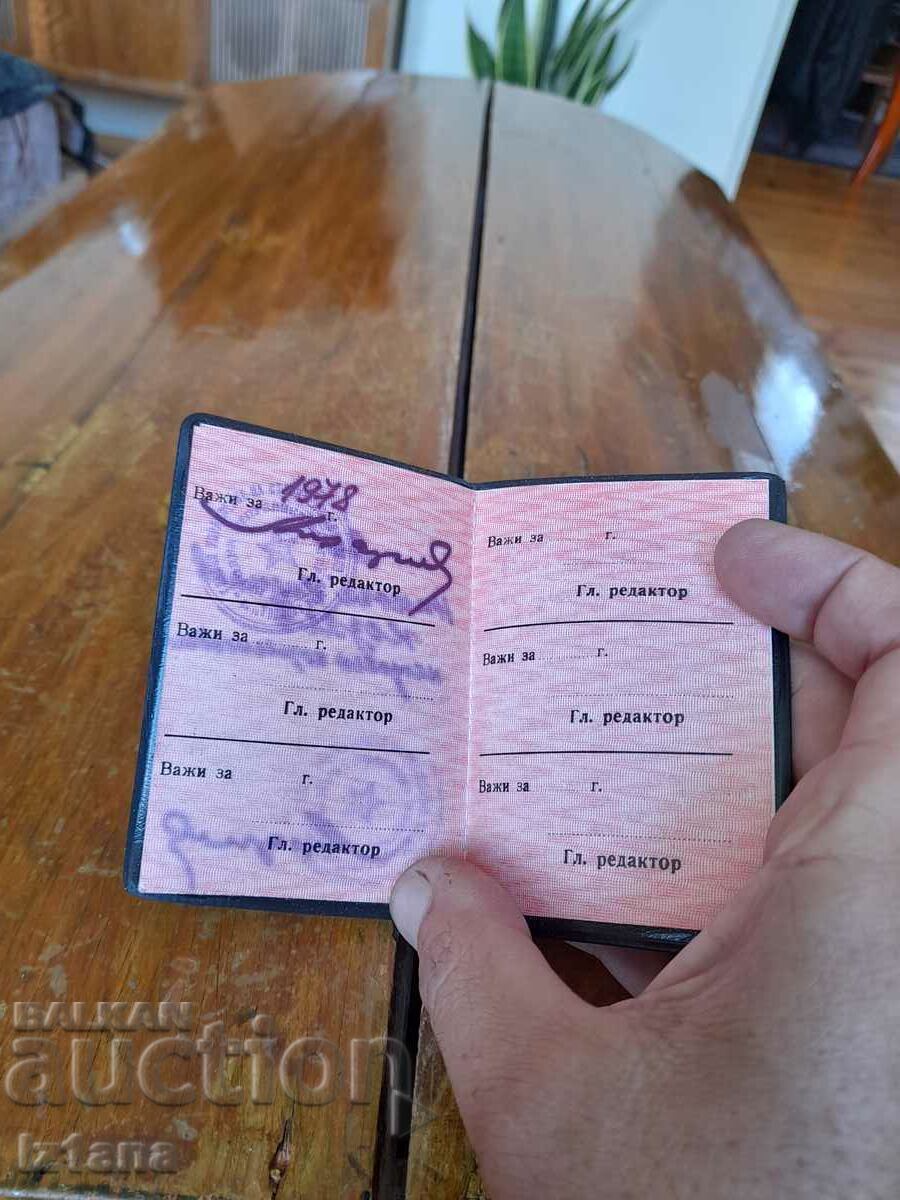 Важи за 1978 г.
Гл. редактор
Важи за г.
Гл. редактор
Важи за г.
Гл. редактор
Важи за г.
Гл. редактор
Важи за г.
Гл. редактор
Важи за г.
Гл. редактор
BALKAN
auction
Iz1ana